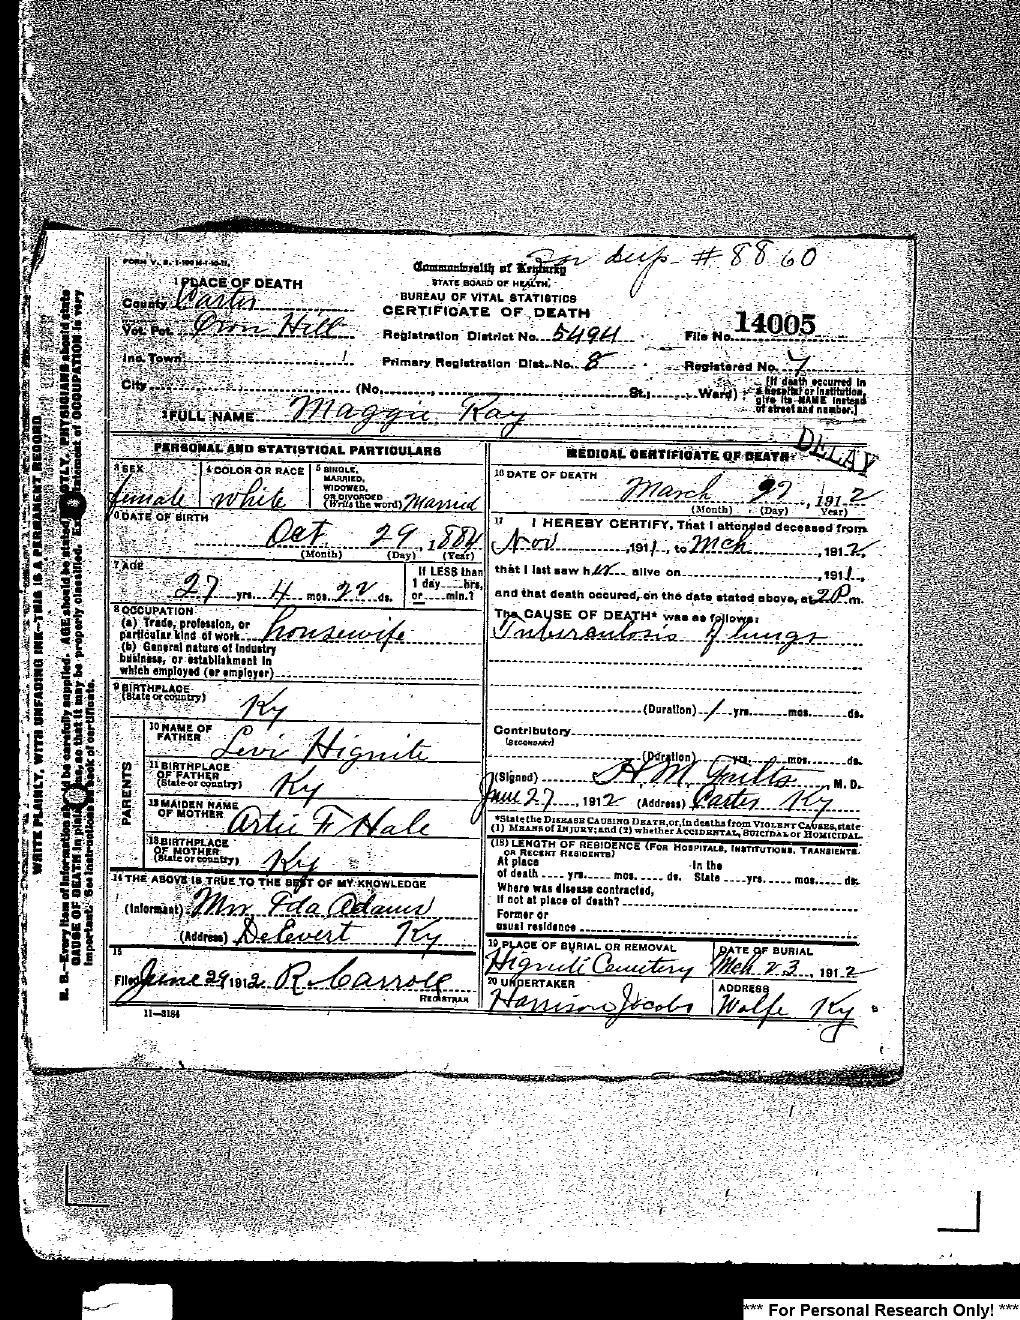 For sup - # 8860
FORM V. S. 1-
Commonwealth of Kentucky
STATE BOARD OF HEALTH,
BUREAU OF VITAL STATISTICS
CERTIFICATE OF DEATH
1 PLACE OF DEATH
County Carter
Vot. Pct. Oron Hill
Registration District No. 5494
File No. 14005
Inc. Town
Primary Registration Dist. No. 8
Registered No. 7
City (No. , St.; Ward)
[If death occurred in
a hospital or institution,
give its NAME instead
of street and number.]
2 FULL NAME Maggie Kay
DELAY
PERSONAL AND STATISTICAL PARTICULARS
3 SEX
female
4 COLOR OR RACE
white
5 SINGLE,
MARRIED,
WIDOWED,
OR DIVORCED
(Write the word) Married
6 DATE OF BIRTH
Oct 29, 1884
(Month) (Day) (Year)
7 AGE
27 yrs. 4 mos. 22 ds.
If LESS than
1 day hrs.
or min.?
8 OCCUPATION
(a) Trade, profession, or
particular kind of work housewife
(b) General nature of industry
business, or establishment in
which employed (or employer)
9 BIRTHPLACE
(State or country) Ky
PARENTS
10 NAME OF
FATHER Levi Hignite
11 BIRTHPLACE
OF FATHER
(State or country) Ky
12 MAIDEN NAME
OF MOTHER Artie F Hale
13 BIRTHPLACE
OF MOTHER
(State or country) Ky
14 THE ABOVE IS TRUE TO THE BEST OF MY KNOWLEDGE
(Informant) Mrs Ida Adams
(Address) DeLevert Ky
15
Filed June 29 1912 R. Carroll
REGISTRAR
11—3184
MEDICAL CERTIFICATE OF DEATH
16 DATE OF DEATH
March 22, 1912
(Month) (Day) Year)
17 I HEREBY CERTIFY, That I attended deceased from
Nov , 1911, to Mch , 1912,
that I last saw her alive on , 191 ,
and that death occured, on the date stated above, at 2 P. m.
The CAUSE OF DEATH* was as follows:
Tuberculosis of lungs
(Duration) 1 yrs. mos. ds.
Contributory
(SECONDARY)
(Duration) yrs. mos. ds.
(Signed) H. M. , M. D.
June 27, 1912 (Address) Carter Ky
*State the DISEASE CAUSING DEATH, or, in deaths from VIOLENT CAUSES, state
(1) MEANS of INJURY; and (2) whether ACCIDENTAL, SUICIDAL or HOMICIDAL.
(18) LENGTH OF RESIDENCE (FOR HOSPITALS, INSTITUTIONS, TRANSIENTS.
OR RECENT RESIDENTS)
At place In the
of death yrs. mos. ds. State yrs. mos. ds.
Where was disease contracted,
if not at place of death?
Former or
usual residence
19 PLACE OF BURIAL OR REMOVAL
Hignite Cemetery
DATE OF BURIAL
Mch 23, 1912
20 UNDERTAKER
Harrison Jacobs
ADDRESS
Wolfe Ky
WRITE PLAINLY, WITH UNFADING INK—THIS IS A PERMANENT RECORD
N. B.—Every item of information should be carefully supplied. AGE should be stated EXACTLY, PHYSICIANS should state
CAUSE OF DEATH in plain terms, so that it may be properly classified. Exact statement of OCCUPATION is very
important. See instructions on back of certificate.
*** For Personal Research Only! ***